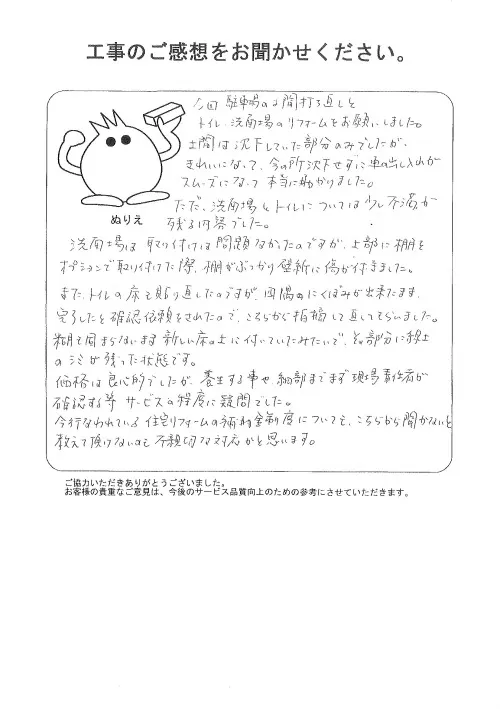 工事のご感想をお聞かせください。
今回 駐車場の土間打ち直しと
トイレ 洗面場のリフォームをお願いしました。
土間は沈下していた部分のみでしたが、
きれいになって、今の所沈下せずに車の出し入れが
スムーズになって 本当に助かりました。
ただ、洗面場とトイレについては少し不満が
残る内容でした。
ぬりえ
洗面場は 取り付けは問題なかったのですが、上部に棚を
オプションで取り付けた際、棚がぶつかり壁紙に傷が付きました。
また、トイレの床も貼り直したのですが、四隅のにくぼみが出来たまま、
完了したと確認依頼をされたので、こちらから指摘して直してもらいました。
糊も固まらないまま 新しい床の上に付いていたみたいで、その部分に
のシミが残った状態です。
価格は良心的でしたが、養生する事や、細部まで 現場責任者が
確認する等 サービスの程度に疑問でした。
今行なわれている 住宅リフォームの補助金制度についても、こちらから聞かないと
教えて頂けないのも 不親切な対応かと思います。
ご協力いただきありがとうございました。
お客様の貴重なご意見は、今後のサービス品質向上のための参考にさせていただきます。